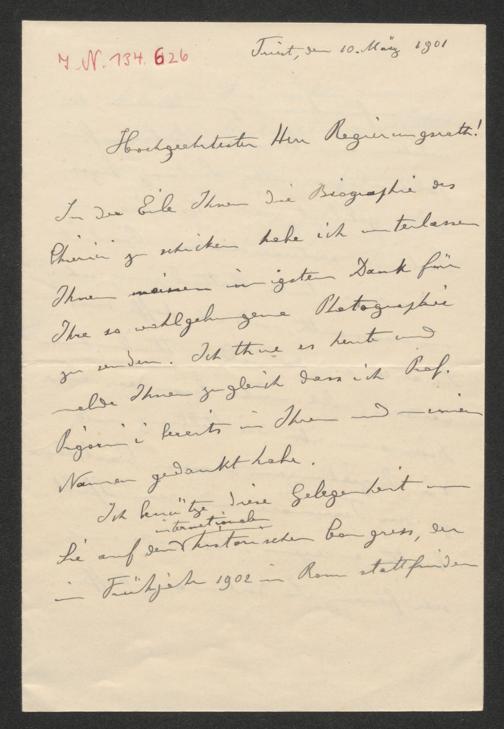 J. N. 134.626
Triest, den 10. März 1901
Hochgeehrtester Herr Regierungsrath!
In der Eile Ihnen die Biographie des
Chierici zu schicken habe ich unterlassen
Ihnen meinen innigsten Dank für
Ihre so wohlgelungene Photographie
zu senden. Ich thue es heute und
melde Ihnen zugleich dass ich Prof.
Pigorini bereits in Ihrem und meinem
Namen gedankt habe.
Ich benütze diese Gelegenheit um
internationalen
Sie auf den historischen Congress, der
im Frühjahr 1902 in Rom stattfinden